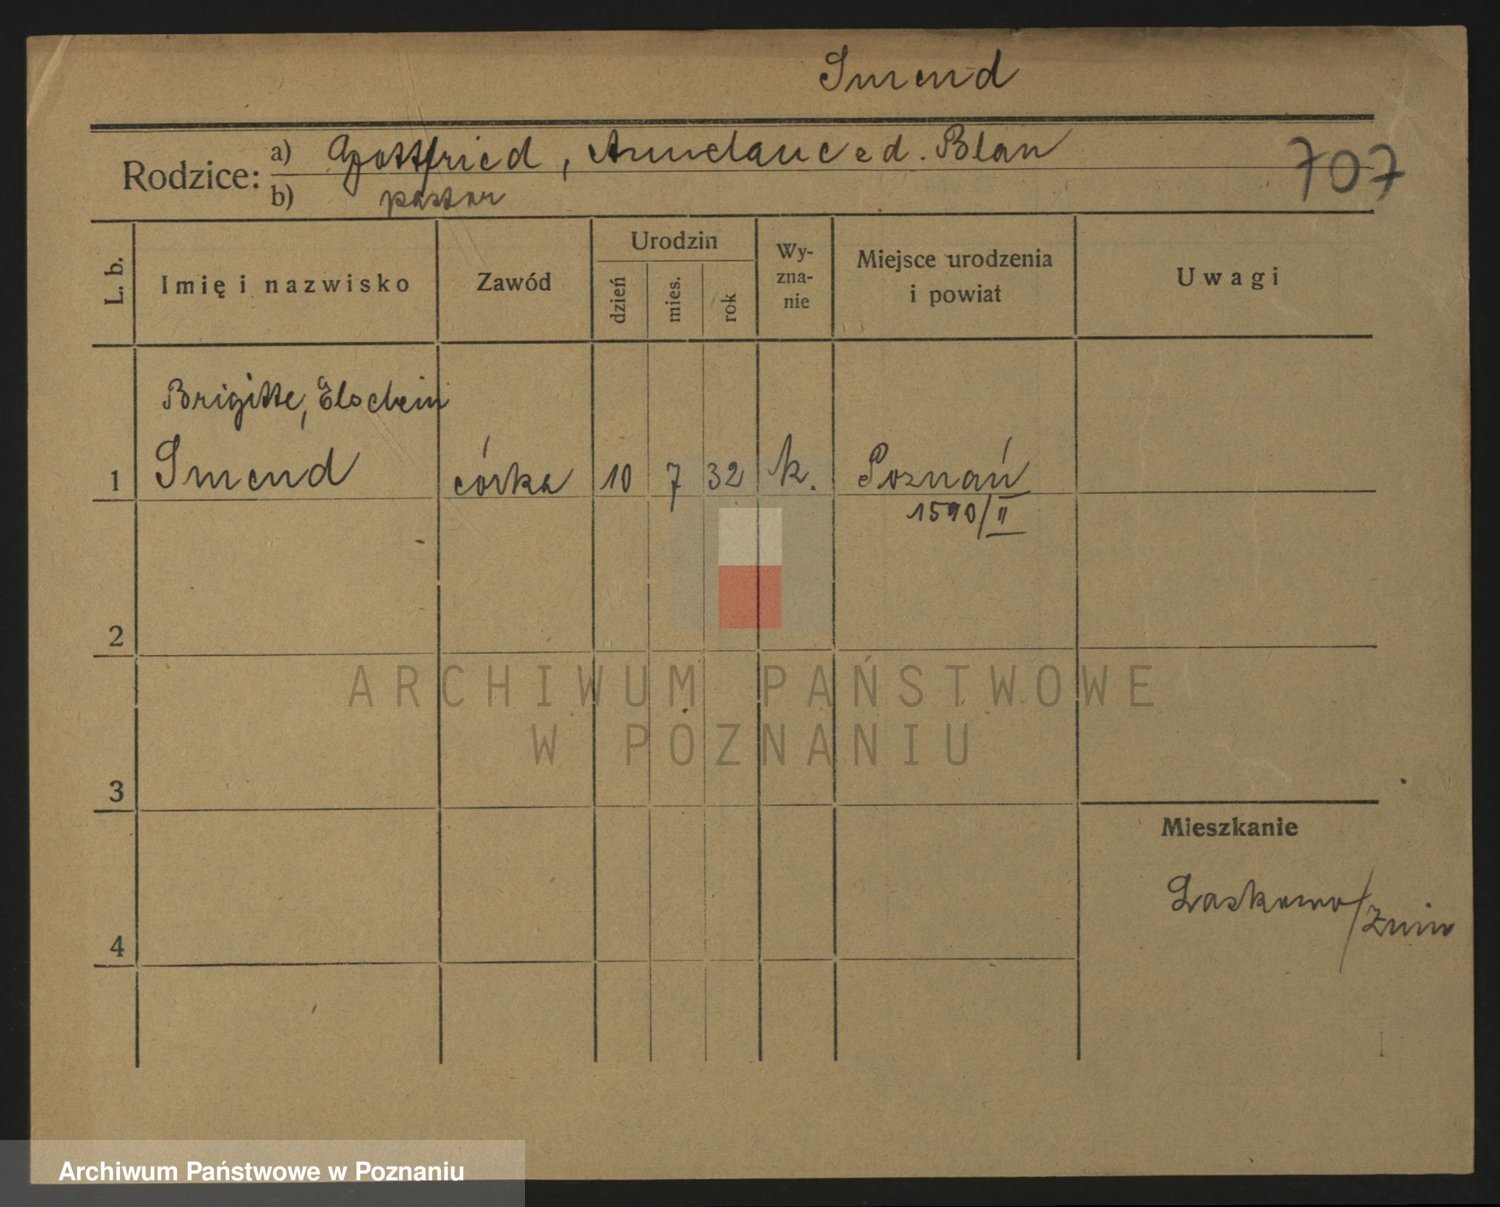 Smend
Rodzice:
a) Gottfried, Annelauced. Blau
b) pastor
707
L. b.
Imię i nazwisko
Zawód
Urodzin
dzień
mies.
rok
Wy-
zna-
nie
Miejsce urodzenia
i powiat
Uwagi
Brigitte,
1 Smend córka 10 7 32 k. Poznań
1590/II
2
3
4
Mieszkanie
Laskowo/Żnin
ARCHIWUM PAŃSTWOWE
W POZNANIU
Archiwum Państwowe w Poznaniu